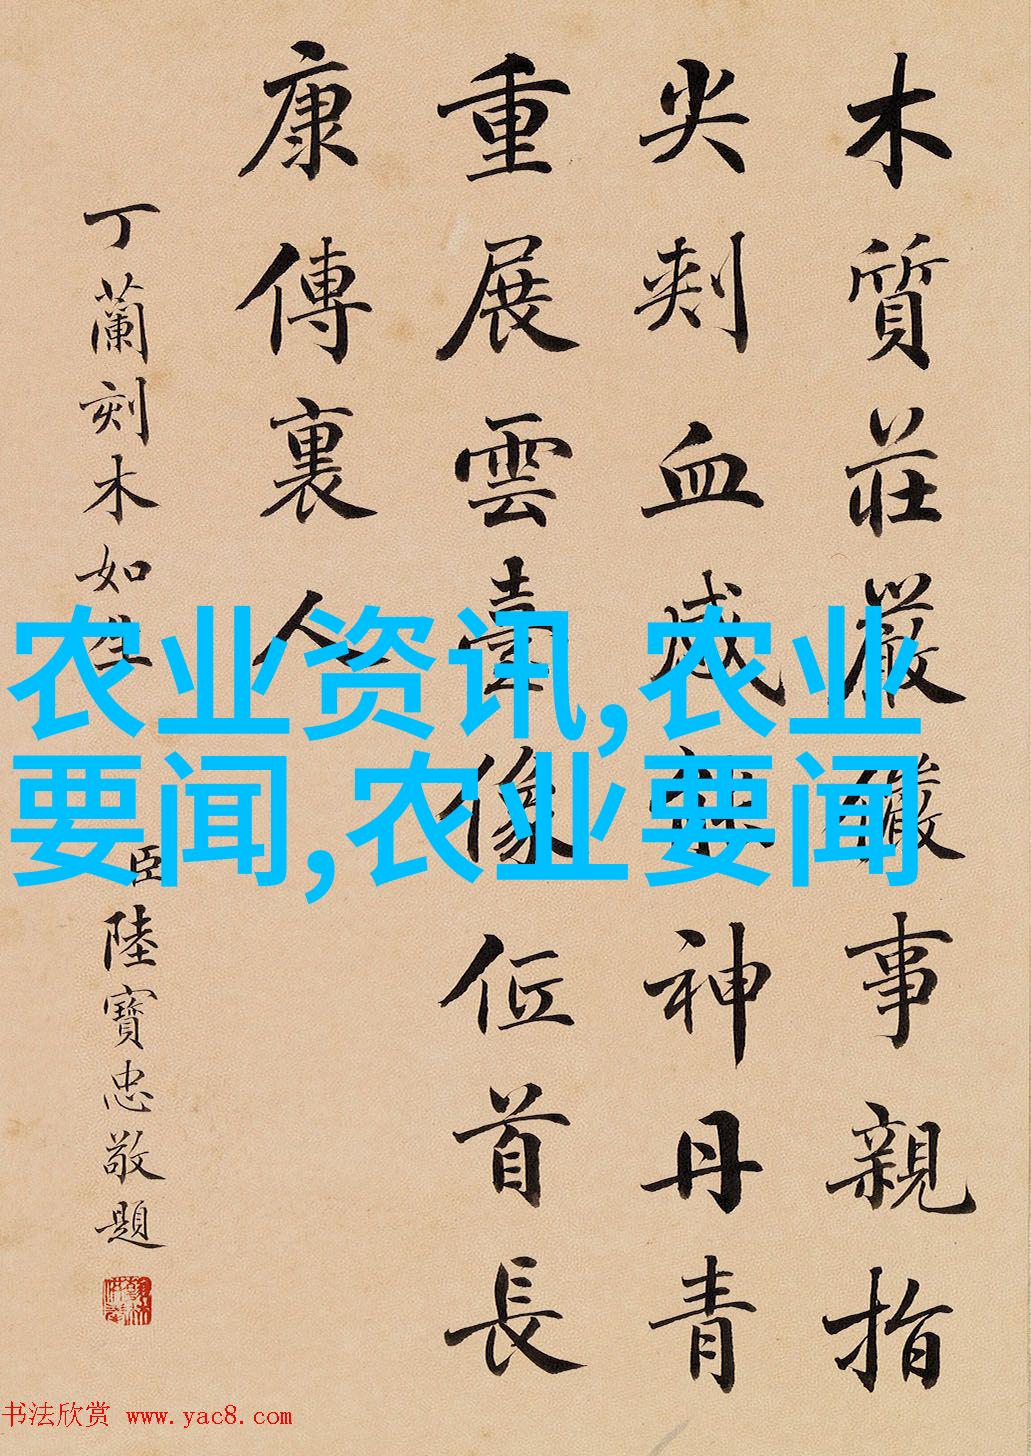 木質莊嚴儼事親指
尖刾血感神丹青
重展雲臺像仾首長
康傳裏人
丁蘭刻木如生
臣陸寶忠敬題
农业资讯,农业
要闻,农业要闻
书法欣赏 www.yac8.com